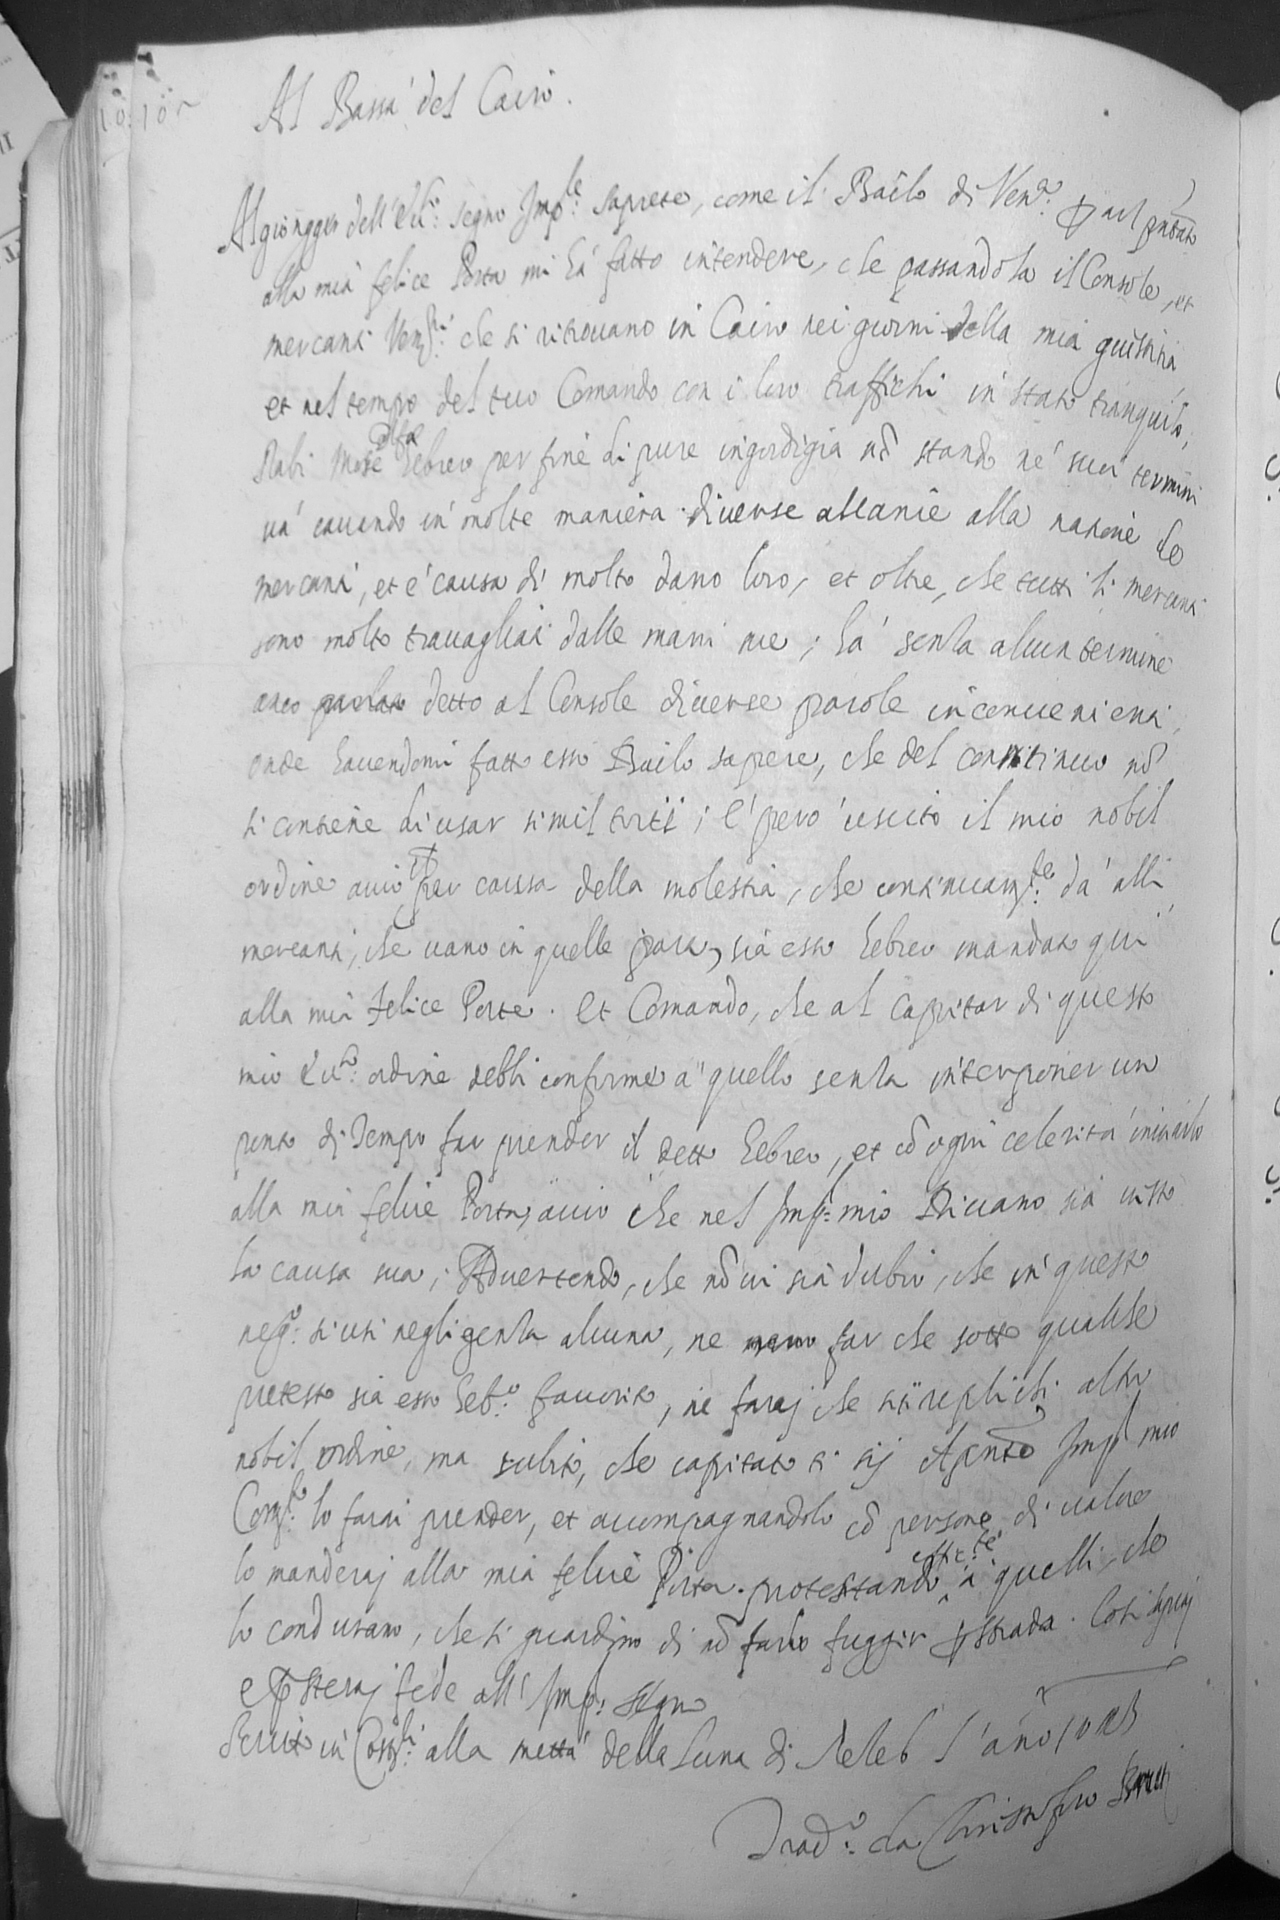 Al Bassà del Cairo.
Al gionger dell'Ecc.o segno Imp.le saprete, come il Bailo di Ven.a
alla mia felice Porta mi hà fatto intendere, che passandosela il Console, et
mercanti Ven.ti che si ritrovano in Cairo nei giorni della mia giustitia
et nel tempo del tuo Comando con i loro traffichi in stato tranquilo,
Rabi Mosè Hebreo per fine di pure ingordigia nõ stando ne' suoi termini
và cavando in molte maniera diverse allanie alla natione de
mercanti, et è causa di molto dano loro, et oltre, che tutti li mercanti
sono molto travagliati dalle mani sue; hà senza alcun termine
anco detto al Console diverse parole inconvenienti,
onde havendomi fatto esso Bailo sapere, che del continuo nõ
si contiene di usar simil torti; È però uscito il mio nobil
ordine acciò per causa della molestia, che continuam.te dà alli
mercanti, che vano in quelle parti, sia esso hebreo mandato qui
alla mia Felice Porte. Et Comando, che al capitar di questo
mio Ecc.o ordine debbi conforme a quello senza interponer un
ponto di Tempo far prender il detto hebreo, et cõ ogni celerità inviarlo
alla mia felice Porta, acciò che nel Imp.l mio Divano sia visto
la causa sua; Advertendo, che nõ vi sia dubio, che in questo
neg.o si usi negligenza alcuna, ne far che sotto qualche
pretesto sia esso heb.o favorito, ne faraj che si replichi altro
nobil ordine, ma subito, che capitato ti sij il pñte Imp.l mio
Com.to lo farai prender, et accompagnandolo cõ persone di valore
lo manderaj alla mia felice Porta. protestando a quelli, che
lo condurano, che si guardino di nõ farlo fuggir p strada. Così sapraj
e presteraj fede all' Imp. segno
Scritto in Cost.li alla mettà della Luna di Releb l'anno
Trad.o da Christoforo